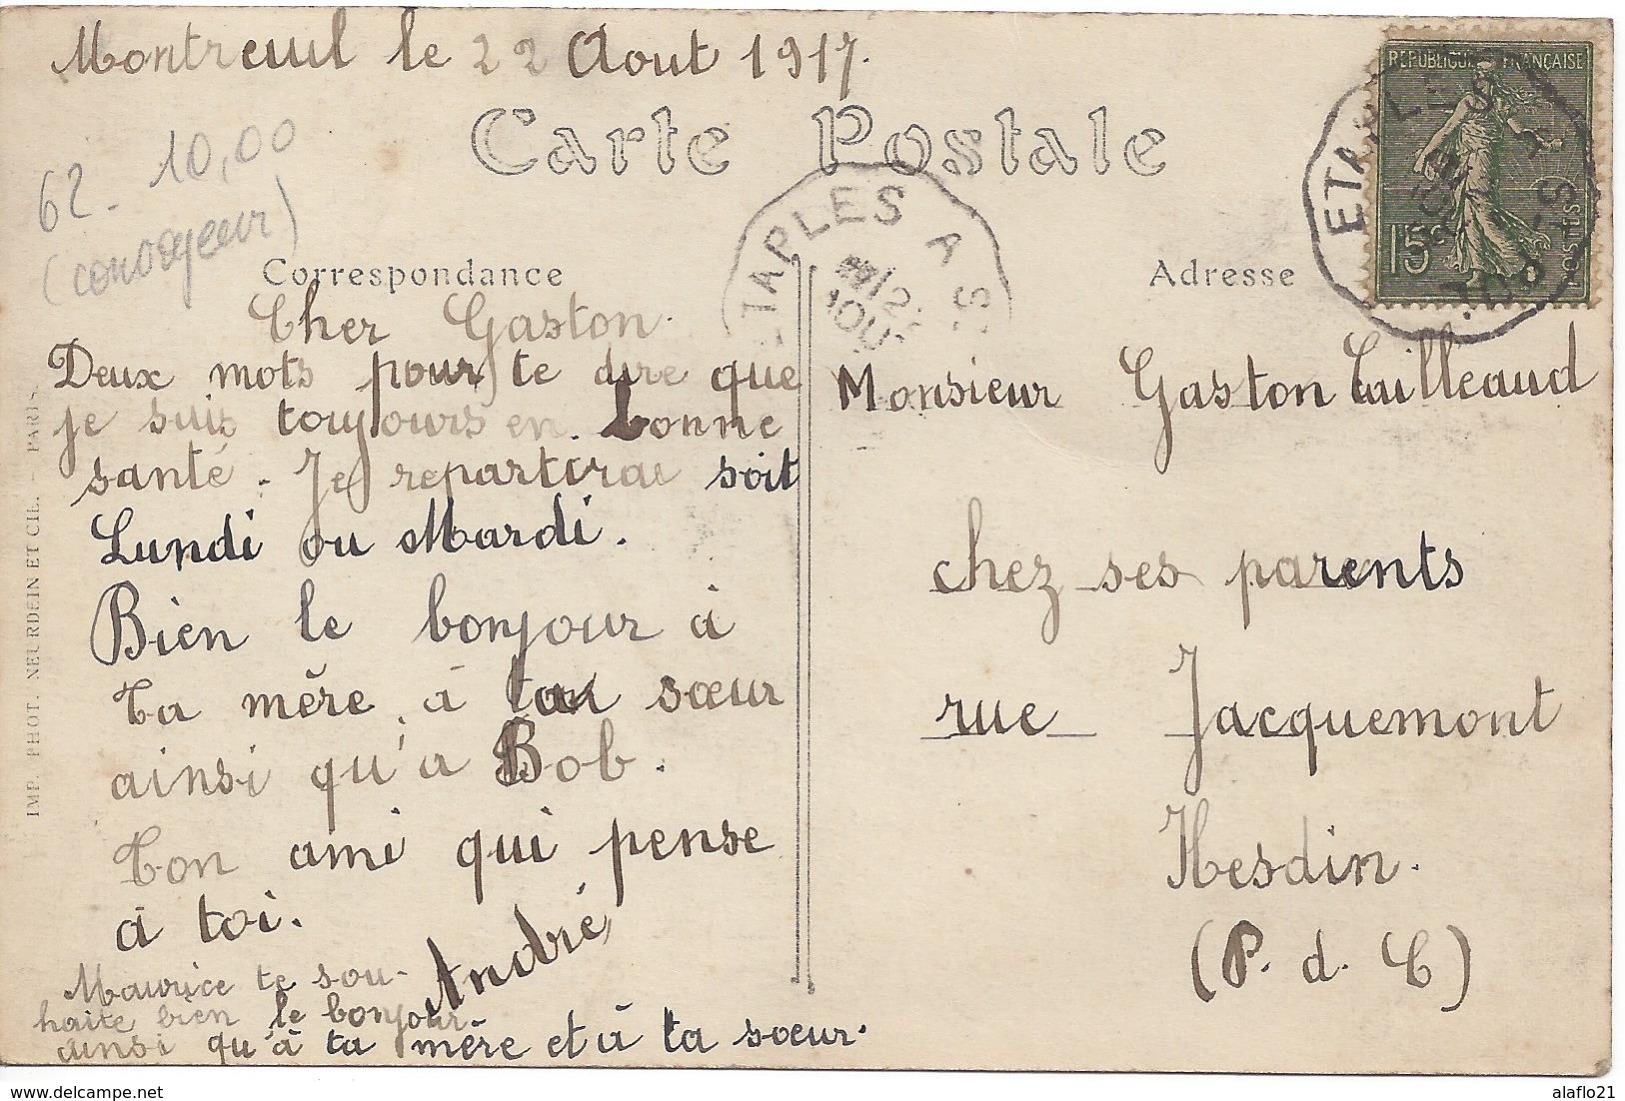 Montreuil le 22 Aout 1917.
Carte Postale
62. 10,00
(convoyeur)
Correspondance
Cher Gaston.
Deux mots pour te dire que
je suis toujours en bonne
santé. Je repartirai soit
Lundi ou Mardi.
Bien le bonjour à
ta mère, à ta sœur
ainsi qu'à Bob.
Ton ami qui pense
à toi.
André
Maurice te sou-
haite bien le bonjour
ainsi qu'à ta mère et à ta sœur.
IMP. PHOT. NEURDEIN ET CIE. - PARIS.
ETAPLES A S
AOU
REPUBLIQUE FRANÇAISE
15c
POSTES
Adresse
Monsieur Gaston Tailleaud
chez ses parents
rue Jacquemont
Hesdin.
(P. d. C)
https://www.delcampe.net
alaflo21